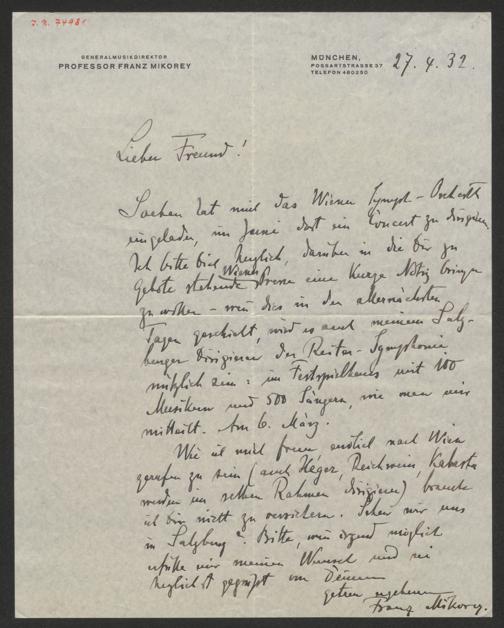 I.N. 74981
GENERALMUSIKDIREKTOR
PROFESSOR FRANZ MIKOREY
MÜNCHEN,
POSSARTSTRASSE 37
TELEFON 480250
27. 4. 32.
Lieber Freund!
Soeben hat mich das Wiener Symph-Orchester
eingeladen, im Juni dort ein Concert zu dirigieren.
Ich bitte Dich herzlich, darüber in die Dir zu
Gebote stehende Wiener Presse eine kurze Notiz bringen
zu wollen – wenn dies in den allernächsten
Tagen geschieht, wird es auch meinem Salz-
burger Dirigieren der Reiter-Symphonie
nützlich sein: im Festspielhaus mit 100
Musikern und 500 Sängern, wie man mir
mitteilt. Am 6. März.
Wie ich mich freue endlich nach Wien
gerufen zu sein (auch Heger, Reichwein, Kabasta
werden im selben Rahmen dirigieren) brauche
ich Dir nicht zu versichern. Sehen wir uns
in Salzburg? Bitte, wenn irgend möglich
erfülle mir meinen Wunsch und sei
herzlichst gegrüßt von Deinem
getreu ergebenen
Franz Mikorey.